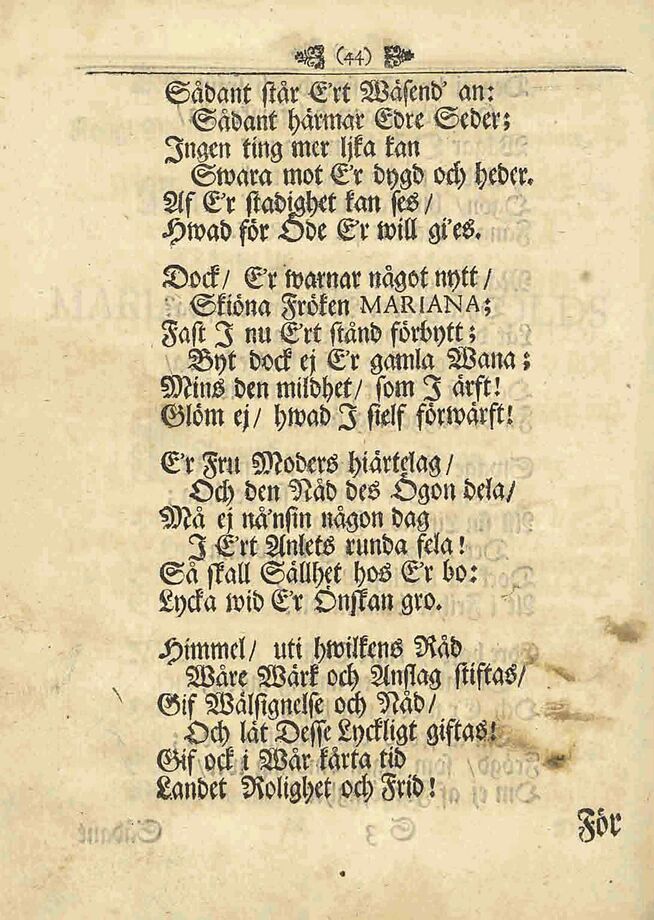 (44)
Sådant står E'rt Wäsend' an:
Sådant härmar Edre Seder;
Ingen ting mer ljka kan
Swara mot E'r dygd och heder.
Af E'r stadighet kan ses/
Hwad för Öde E'r will gi'es.
Dock/ E'r warnar något nytt/
Skiöna Fröken MARIANA;
Fast I nu E'rt stånd förbytt;
Byt dock ej E'r gamla Wana;
Mins den mildhet/ som I ärft!
Glöm ej/ hwad I sielf förwärft!
E'r Fru Moders hiärtelag/
Och den Nåd des Ögon dela/
Må ej nå'nsin någon dag
I E'rt Anlets runda fela!
Så skall Sällhet hos E'r bo:
Lycka wid E'r Önskan gro.
Himmel/ uti hwilkens Råd
Wåre Wärk och Anslag stiftas/
Gif Wälsignelse och Nåd/
Och låt Desse Lyckligt giftas!
Gif ock i Wår kårta tid
Landet Rolighet och Frid!
För